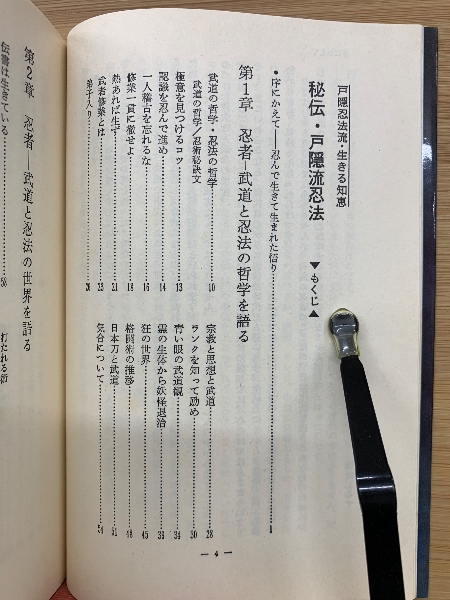 戸隠忍法流・生きる知恵
秘伝・戸隠流忍法
▼もくじ▲
●序にかえて――忍んで生きて生まれた悟り
第1章 忍者―武道と忍法の哲学を語る
武道の哲学・忍法の哲学 10
武道の哲学/忍術秘訣文
極意を見つけるコツ 13
認識を忍んで進め 14
一人稽古を忘れるな 16
修業一貫に徹せよ 18
熱あれば生ず 21
武者修業とは 23
弟子入り 26
宗教と思想と武道 28
ランクを知って励め 30
青い眼の武道観 34
霊の生体から妖怪退治 39
狂の世界 45
格闘術の推移 48
日本刀と武道 51
気合について 54
第2章 忍者―武道と忍法の世界を語る
伝書は生きている 58
打たれる術
― 4 ―